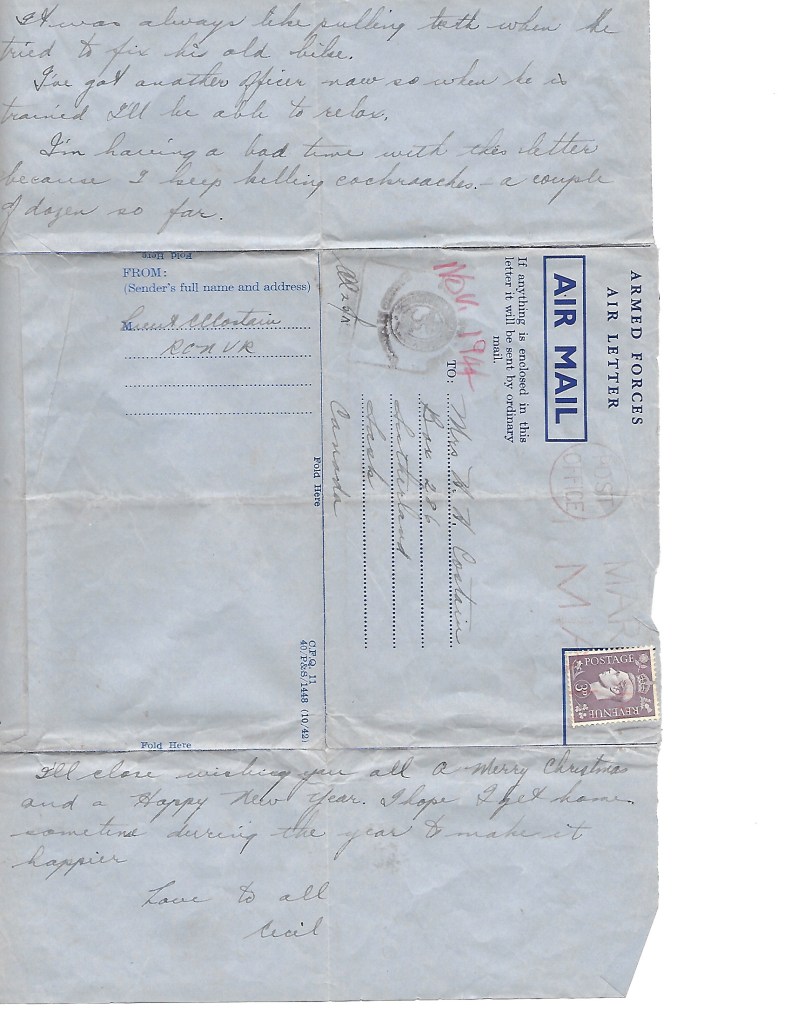 It was always like pulling teeth when he
tried to fix his old bike.
I've got another officer now so when he is
trained I'll be able to relax.
I'm having a bad time with this letter
because I keep killing cockroaches - a couple
of dozen so far.
Fold Here
FROM:
(Sender's full name and address)
M Lieut C Costain
RCNVR
Fold Here
C.F.Q. 11
40/P.&S/1448 (10/42)
Fold Here
ARMED FORCES
AIR LETTER
AIR MAIL
If anything is enclosed in this
letter it will be sent by ordinary
mail.
Nov. 1944
TO: Mrs
Costain
Box 286
Sutherland
Sask
Canada
POST
OFFICE
MAR
MA
POSTAGE
3D
REVENUE
I'll close wishing you all a Merry Christmas
and a Happy New Year. I hope I get home
sometime during the year to make it
happier
Love to all
Cecil